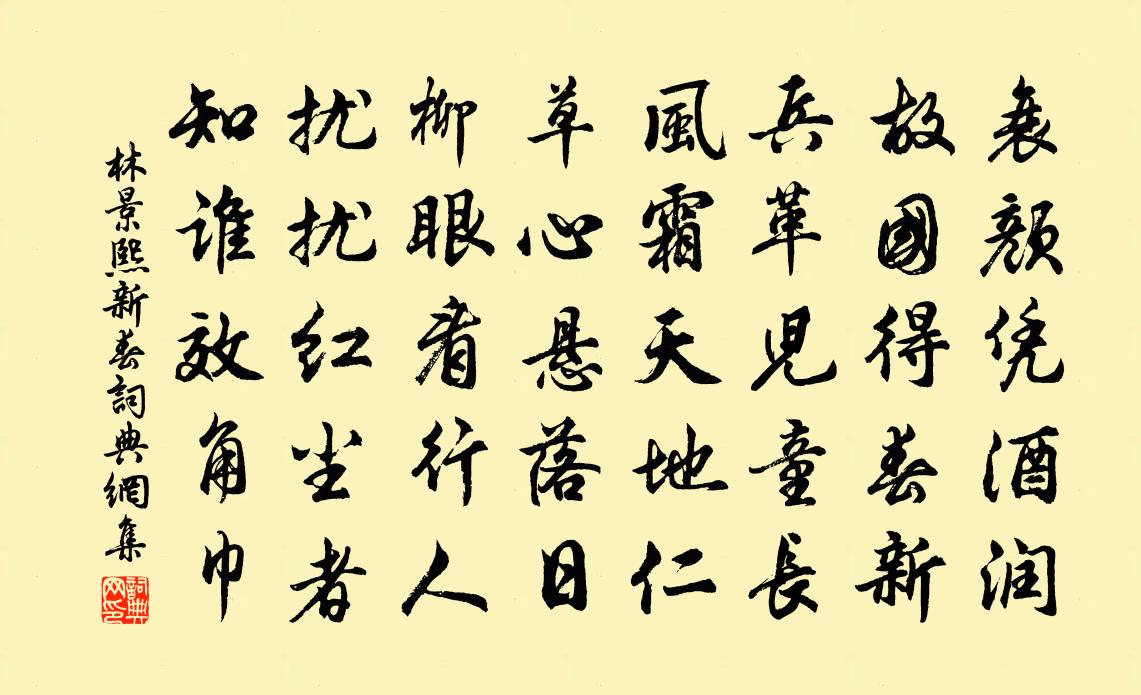 衰颜凭酒润
故國得春新
兵革児童長
風霜天地仁
草心悬落日
柳眼看行人
扰扰红尘者
知谁效角巾
林景熙新春詞典網集
詞典网印